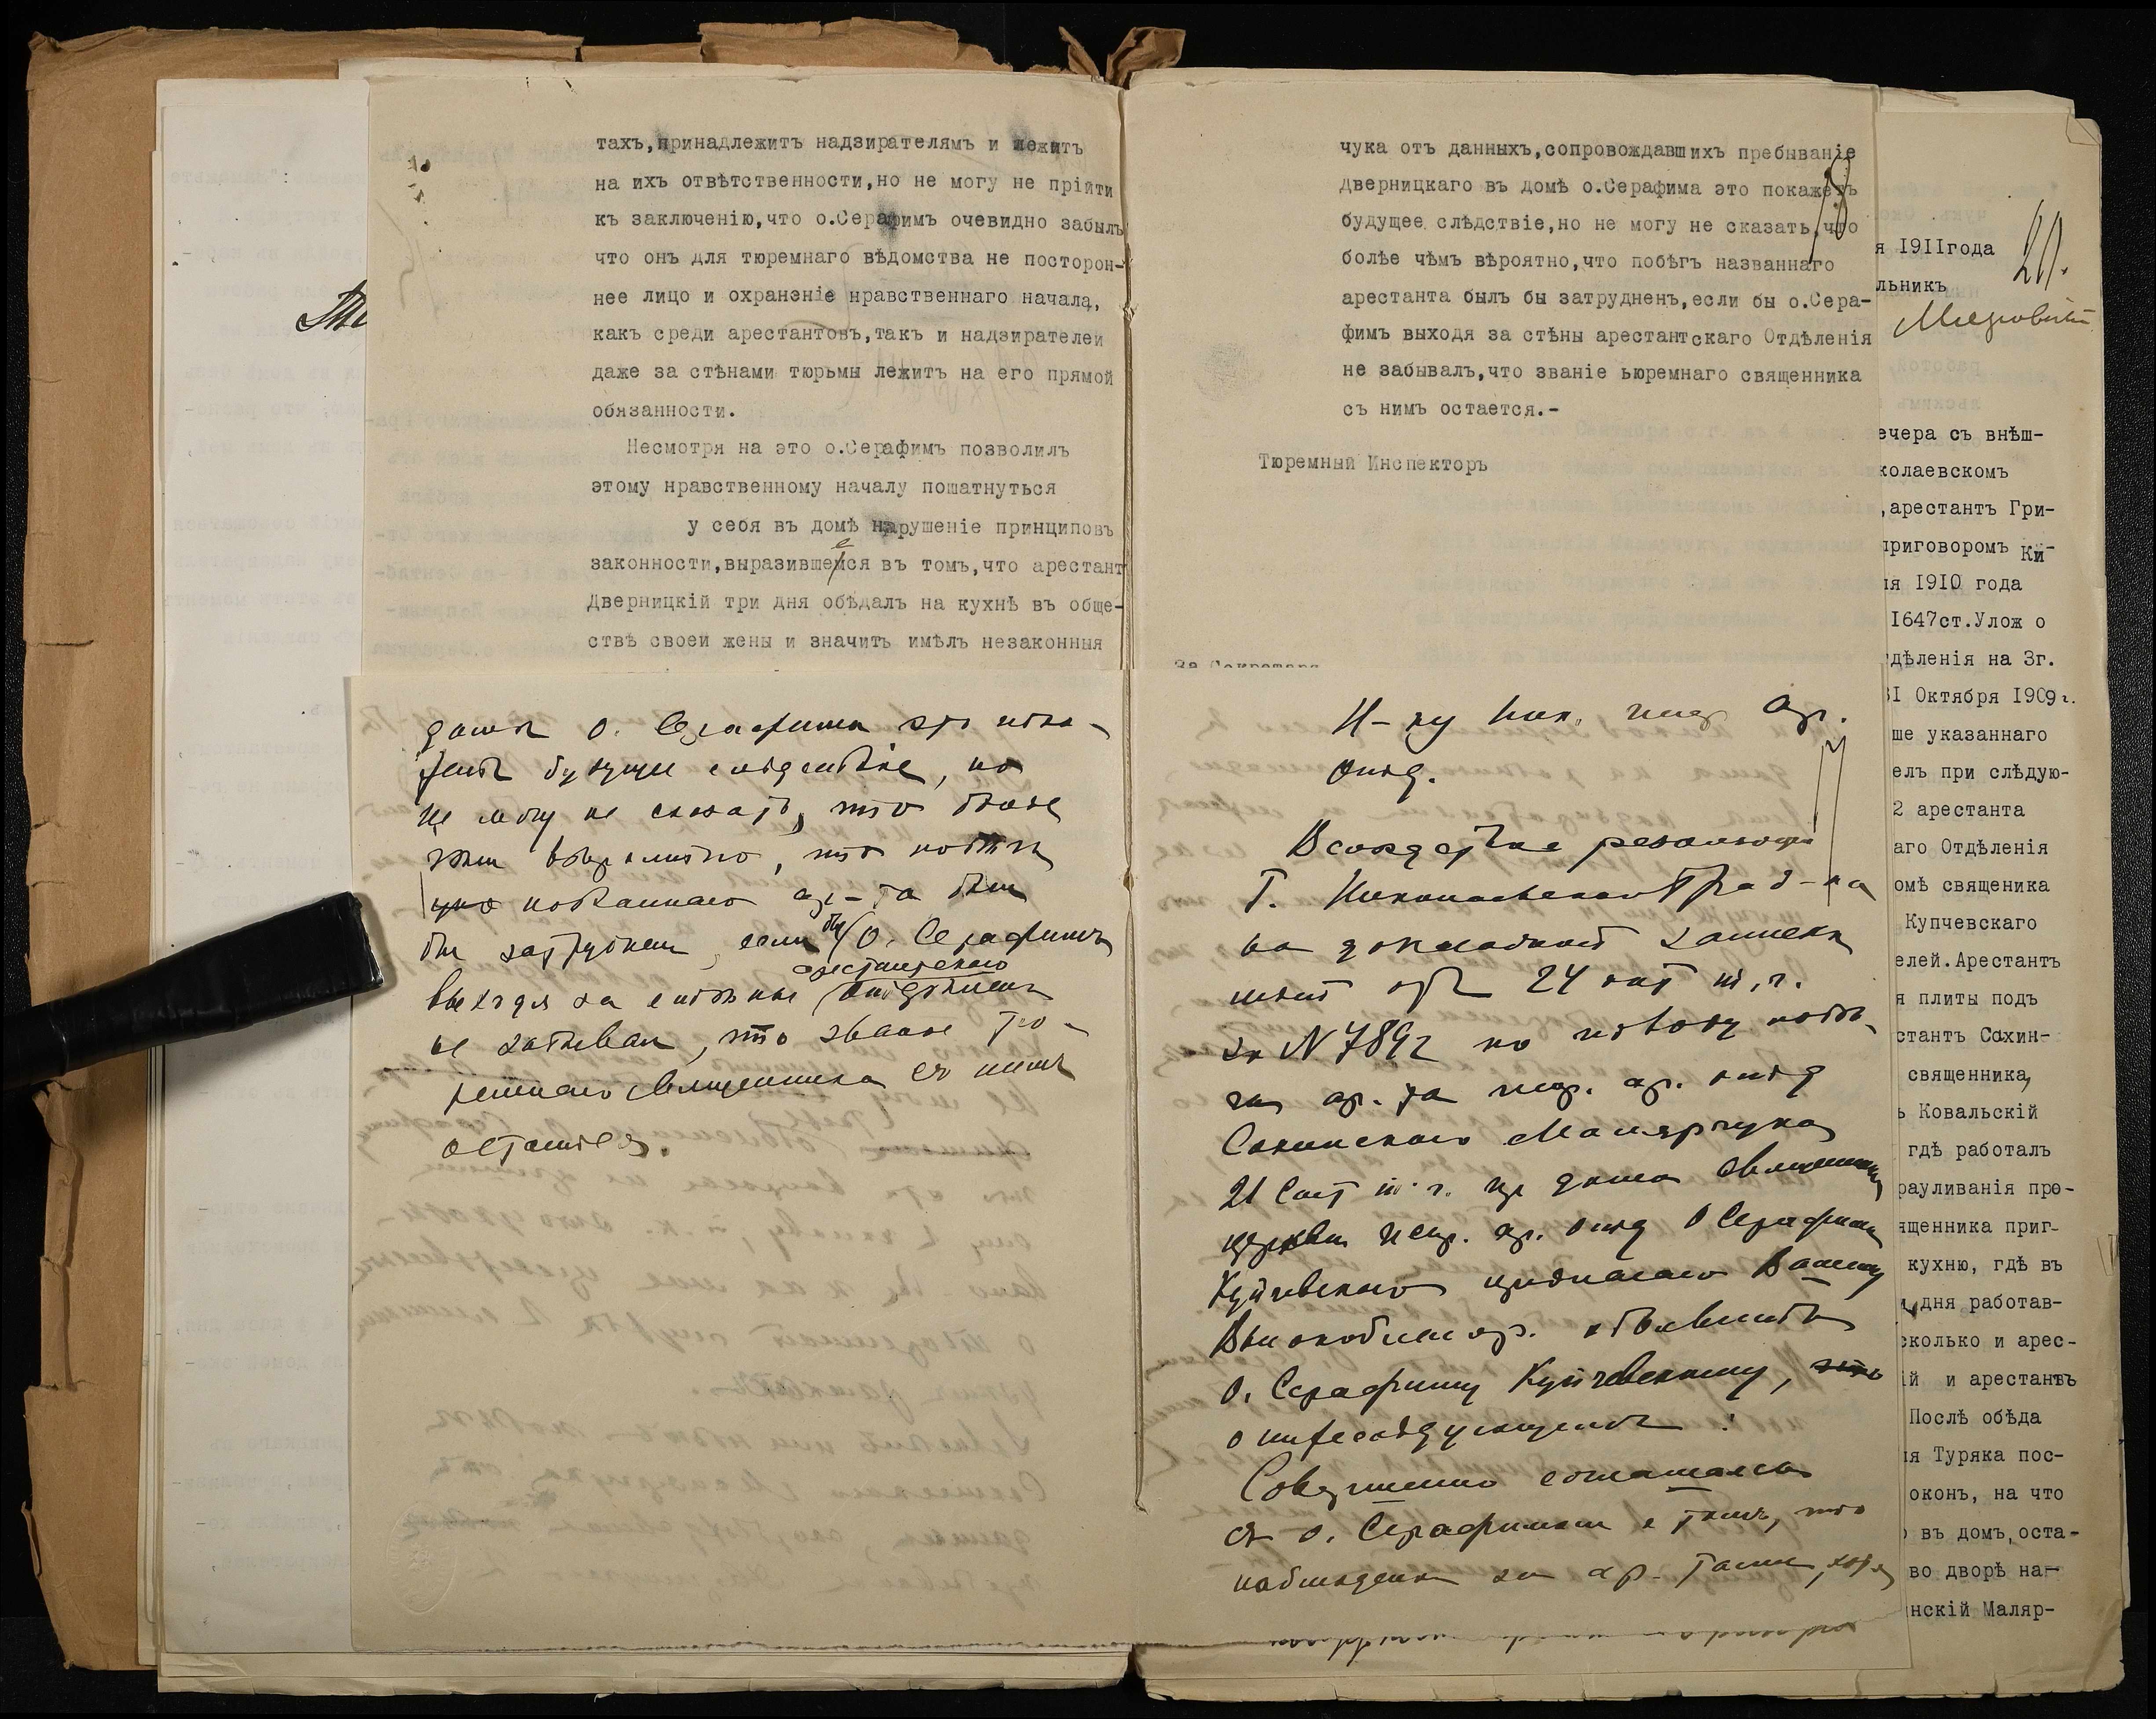 тахъ,принадлежитъ надзирателямъ и лежитъ
на ихъ отвѣтственности,но не могу не прійти
къ заключенію,что о.Серафимъ очевидно забылъ
что онъ для тюремнаго вѣдомства не посторон-
нее лицо и охраненіе нравственнаго начала,
какъ среди арестантовъ,такъ и надзирателей
даже за стѣнами тюрьмы лежитъ на его прямой
обязанности.
Несмотря на это о.Серафимъ позволилъ
этому нравственному началу пошатнуться
у себя въ домѣ нарушеніе принциповъ
законности,выразившейся въ томъ,что арестант
Дверницкій три дня обѣдалъ на кухнѣ въ обще-
ствѣ своей жены и значитъ имѣлъ незаконныя
домѣ о. Серафима это пока-
жетъ будущее слѣдствіе, но
не могу не сказать, что болѣе
чѣмъ вѣроятно, что побѣгъ
что названнаго ар-та былъ
бы затрудненъ, если бы о. Серафимъ
арестантскаго
выходя за стѣны отдѣленія
не забывалъ, что званіе тю-
ремнаго священника съ нимъ
остается.
чука отъ данныхъ,сопровождавшихъ пребываніе
Дверницкаго въ домѣ о.Серафима это покажетъ
будущее слѣдствіе,но не могу не сказать,что
болѣе чѣмъ вѣроятно,что побѣгъ названнаго
арестанта былъ бы затрудненъ,если бы о.Сера-
фимъ выходя за стѣны арестантскаго Отдѣленія
не забывалъ,что званіе ьюремнаго священника
съ нимъ остается.-
Тюремный Инспекторъ
За Секретаря
Н-ку Ник. испр. ар.
отд.
Вслѣдствіе резолюціи
Г. Николаевскаго Град-ка
на докладной запискѣ
моей отъ 24 окт т.г.
за N 7892 по поводу побѣ-
га ар-та испр. ар. отд
Сахинскаго Малярчука
21 Сент т.г. изъ дома священника
церкви испр. ар. отд О Серафима
Купчевскаго предлагаю Вашему
Высокоблагор. объявить
о. Серафиму Купчевскому, что
о нижеслѣдующемъ:
Совершенно соглашаясь
съ о. Серафимомъ въ томъ, что
наблюденіе за ар-тами,
20.
я 1911года
льникъ
ечера съ внѣш-
колаевскомъ
,арестант Гри-
приговоромъ Ки-
ія 1910 года
1647ст.Улож о
тдѣленія на 3г.
31 Октября 1909г.
ше указаннаго
елъ при слѣдую-
2 арестанта
аго Отдѣленія
омѣ священика
Купчевскаго
елей.Арестантъ
я плиты подъ
стантъ Сахин-
священника,
ъ Ковальскій
гдѣ работалъ
рауливанія про-
ященника приг-
кухню, гдѣ въ
дня работав-
сколько и арес-
ій и арестантъ
Послѣ обѣда
ія Туряка пос-
оконъ, на что
въ домъ,оста-
во дворѣ на-
нскій Маляр-